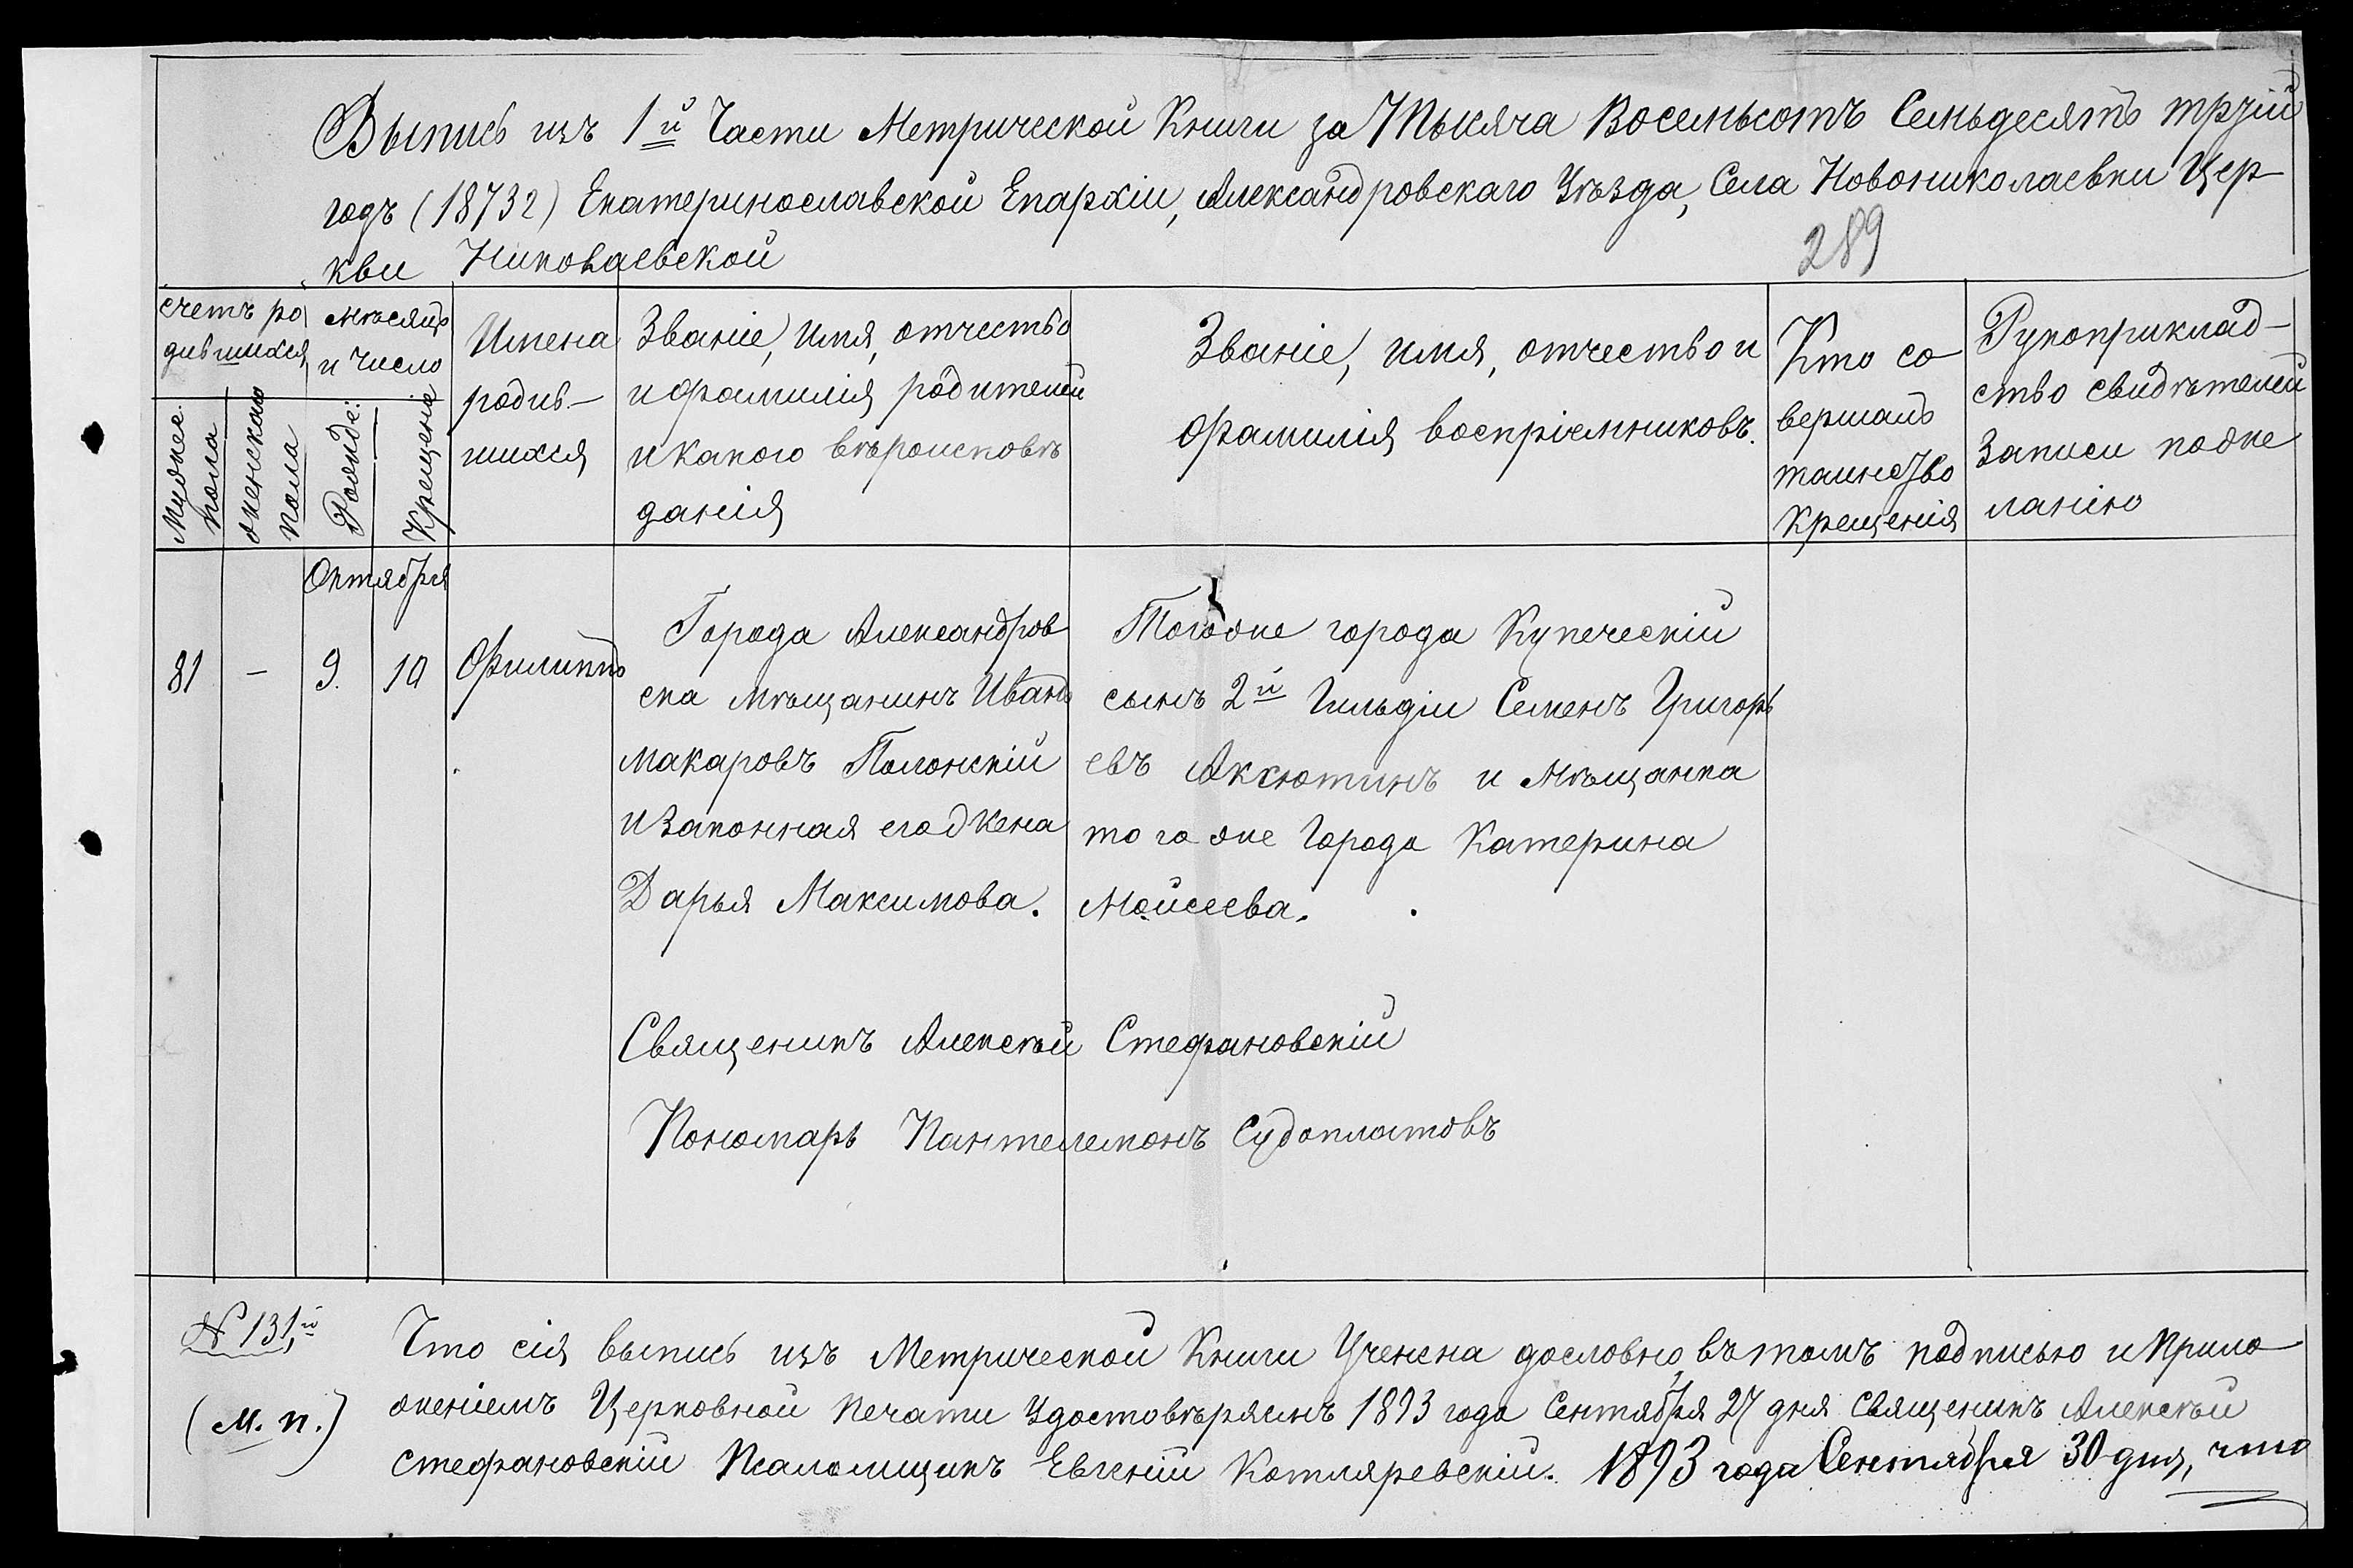 Выпись изъ 1й Части Метрической Книги за Тысяча Восемьсотъ Семьдесятъ трзій
годъ (1873г) Екатеринославской Епархіи, Александровскаго Уѣзда, Села Новониколаевки Цер-
кви Николаевской
289
счетъ ро
дившихся
Мужес.
пола
женскаго
пола
мѣсяцъ
и число
Рожде:
Крещене
Имена
родив-
шихся
Званіе, имя, отчество
и фамилія родителей
и какого вѣроисповѣ
данія
Званіе, имя, отчество и
фамилія воспріемниковъ.
Кто со
вершалъ
таинство
крещенія
Рукоприклад-
ство свидѣтелей
записи по же
ланію
Октября
81 - 9. 10 Филиппъ
Города Александров
ска мѣщанинъ Иванъ
Макаровъ Полонскій
и законная его жена
Дарья Максимова.
Того же города Купеческій
сынъ 2й Гильдіи Семенъ Григорь
евъ Аксютинъ и Мѣщанка
того же Города Катерина
Мойсеева.
Священикъ Алексѣй Стефановскій
Пономарь Пантелемонъ Судоплатовъ
№ 131,й
(М. п.)
Что сія выпись изъ Метрической Книги Учинена дословно, въ томъ подписью и Прило
женіемъ Церковной печати Удостовѣряемъ 1893 года Сентября 27 дня Священикъ Алексѣй
Стефановскій Псаломщикъ Евгеній Котляревскій. 1893 года Сентября 30 дня, что